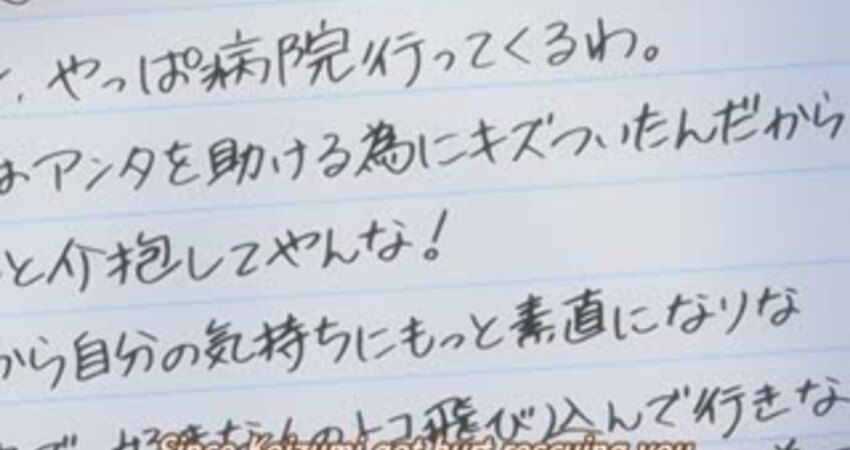 、やっぱ病院行ってくるわ。
はアンタを助ける為にキズついたんだから
と介抱してやんな!
から自分の気持ちにもっと素直になりな
飛び込んで行きな
Since Koizumi got hurt rescuing you